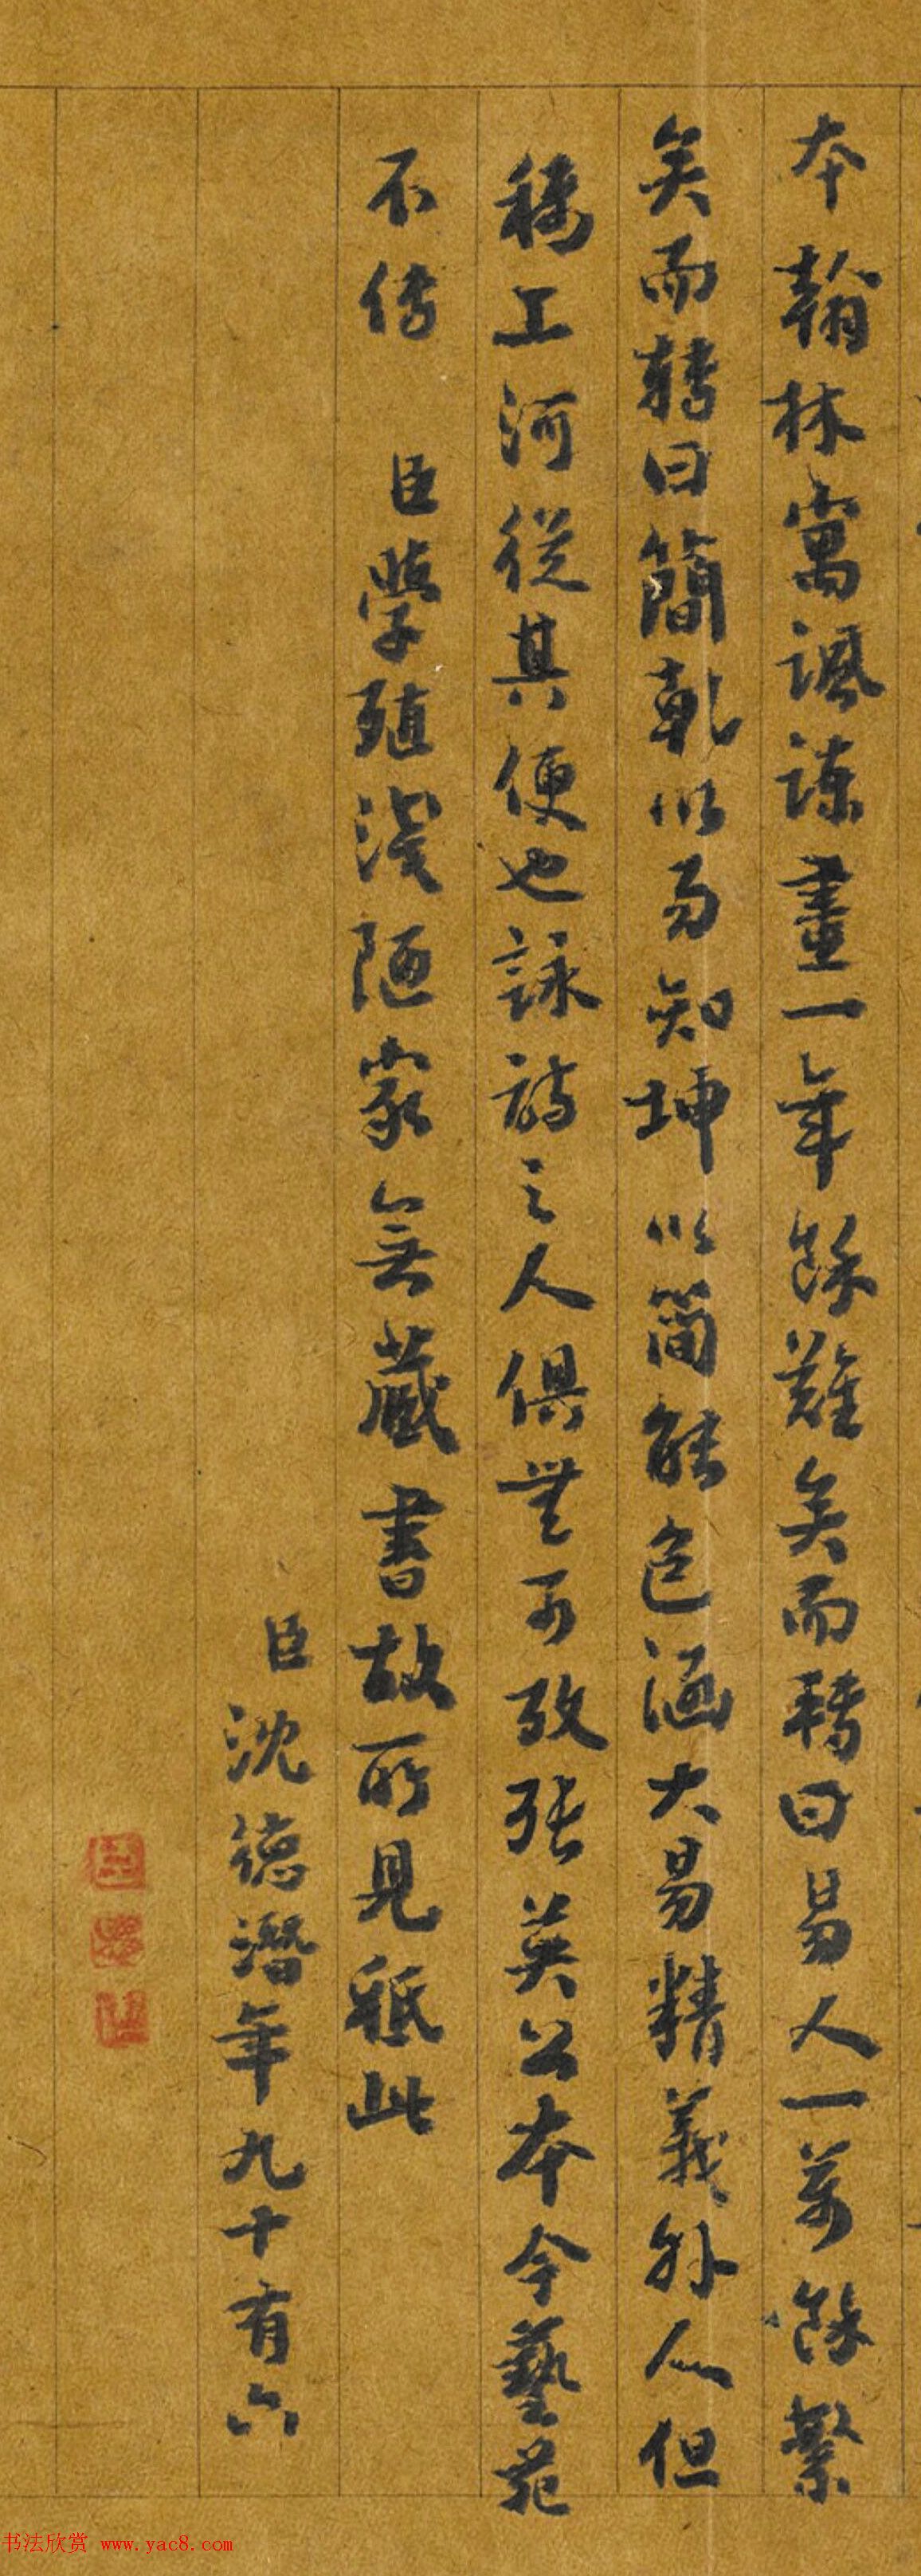 本翰林寓諷諫畫一年餘難矣而轉曰易人一萬餘繁
矣而轉曰簡乾以易知坤以簡能包涵大易精義外人但
稱工河從其便也詠詩之人俱無可攷張英公本今藝苑
不傳 臣學殖淺陋家無藏書故所見秪此
臣沈德潛年九十有六
书法欣赏 www.yac8.com